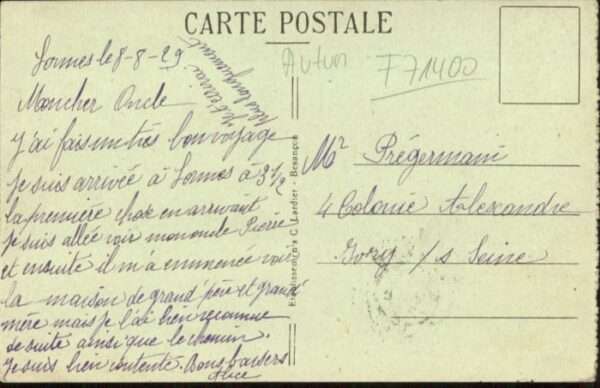 CARTE POSTALE
Autun
F71400
Lormes le 8-8-29
Mon cher Oncle
J'ai fais un très bon voyage
je suis arrivée à Lormes à 3 1/2
la première chose en arrivant
je suis allée voir mon oncle Pierre
et ensuite il m'a emmenée voir
la maison de grand père et grand
mère mais je l'ai bien reconnue
de suite ainsi que le chemin.
Je suis bien contente. Bons baisers
Alice
je t'écrirai
plus longuement
Etablissements C. Lardier - Besançon
Mr Prégermain
4 Colonie Alexandre
Ivry /s Seine